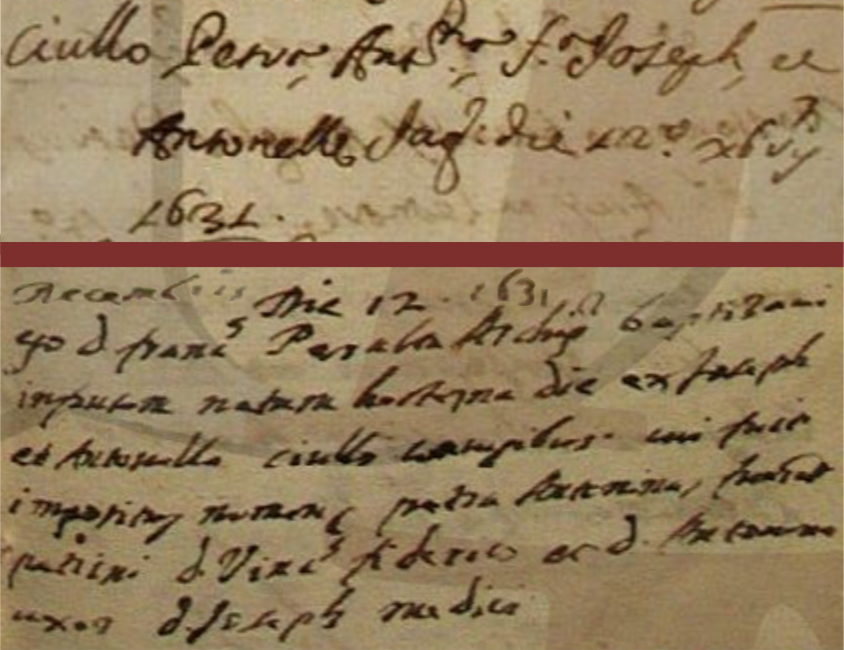 Ciullo Petrus Ant.nus f. Joseph, et
Antonella Jug. die 12.
1631.
Decembris Die 12. 1631
ego d. franc.s Peralta Archip. baptizavi
infantem natam hesterna die ex Joseph
et Antonella ciullo coniugibus. cui fuit
impositum nomen petra Antonina, fuerunt
patrini d. Vinc.s federico et d. Antonina
uxor d. Joseph medici